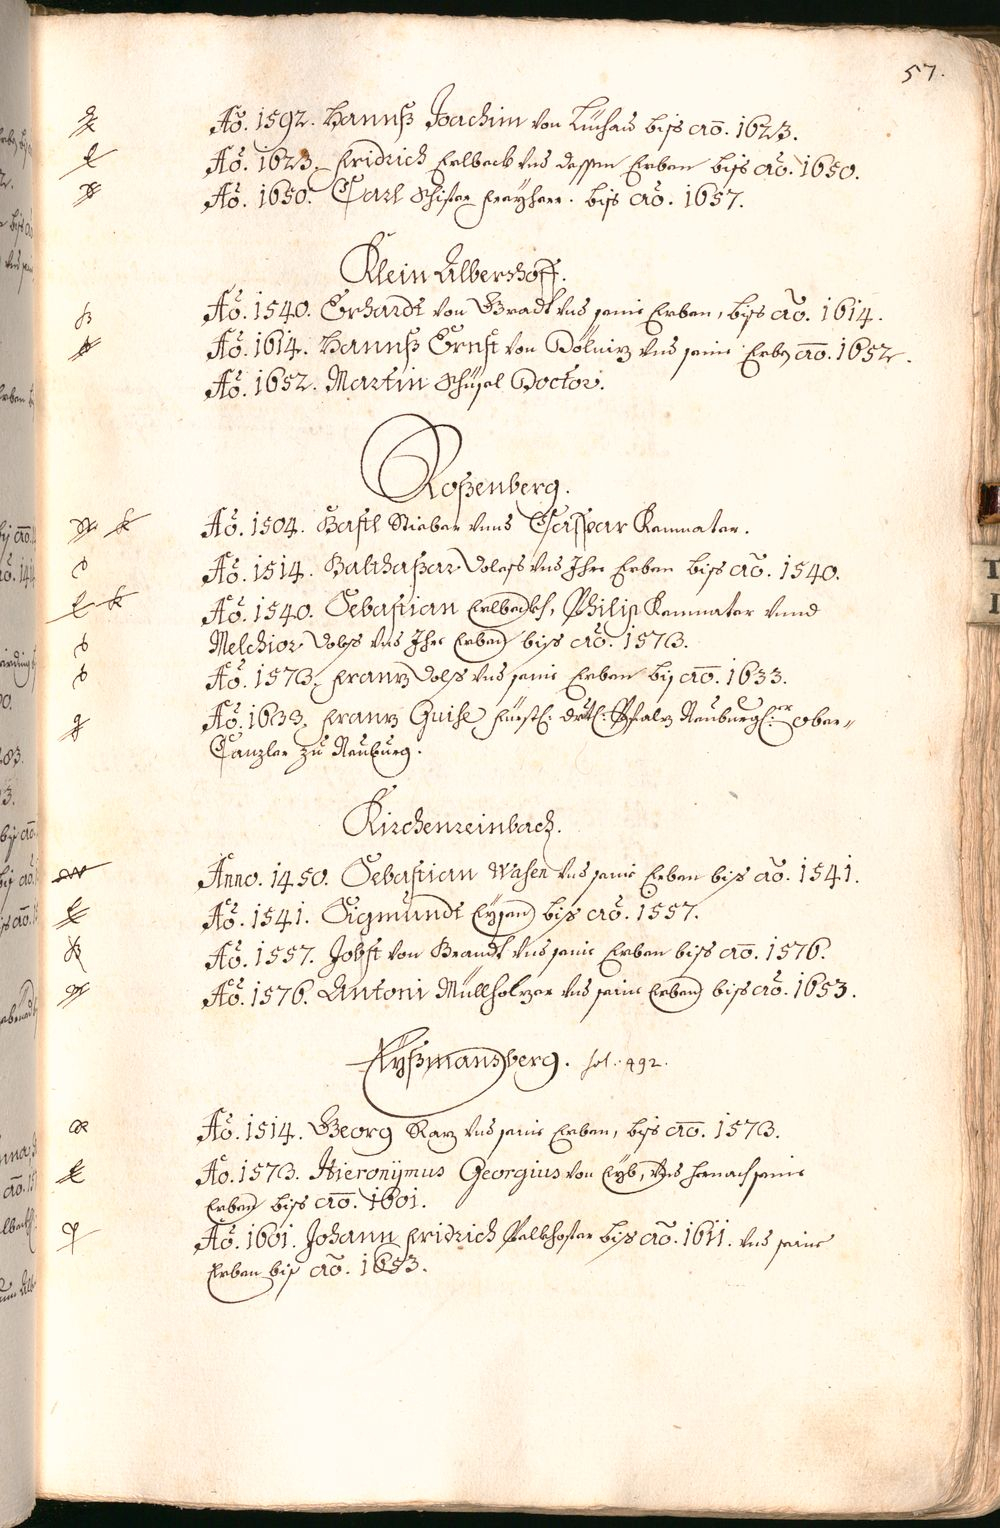 57.
Aō. 1592. Hannß Joachim von Lüchau biß aō. 1623.
Aō. 1623. Fridrich Erlbeck vnd dessen Erben biß aō. 1650.
Aō. 1650. Carl Freyherr. biß aō. 1657.
Klein Albershoff.
Aō. 1540. Erhardt von Brandt vnd seine Erben, biß aō. 1614.
Aō. 1614. Hannß Ernst von Dölniz vnd seine Erben aō. 1652.
Aō. 1652. Martin Schüsel Doctor.
Roßenberg.
Aō. 1504. Bastl Stieber vnnd Casspar Kemnater.
Aō. 1514. Balthaßar vnd Ihre Erben biß aō. 1540.
Aō. 1540. Sebastian Erlbeckh, Philip Kemnater vnnd
Melchior vnd Ihre Erben biß aō. 1573.
Aō. 1573. Frantz vnd seine Erben biß aō. 1633.
Aō. 1633. Frantz Guise Fürstl: Drtl: Pfaltz Neuburgl:er Ober-
Canzler zu Neuburg.
Kirchenreinbach.
Anno. 1450. Sebastian Wasen vnd seine Erben biß aō. 1541.
Aō. 1541. Sigmundt biß aō. 1557.
Aō. 1557. Jobst von Brandt vnd seine Erben biß aō. 1576.
Aō. 1576. Antoni Müllholzer vnd seine Erben biß aō. 1653.
Eyßmansberg. fol. 492.
Aō. 1514. Georg Karz vnd seine Erben, biß aō. 1573.
Ao. 1573. Hieronÿmus Georgius von Eyb, vnd hernach seine
Erben biß aō. 1601.
Aō. 1601. Johann Fridrich biß aō. 1611. vnd seine
Erben biß aō. 1653.